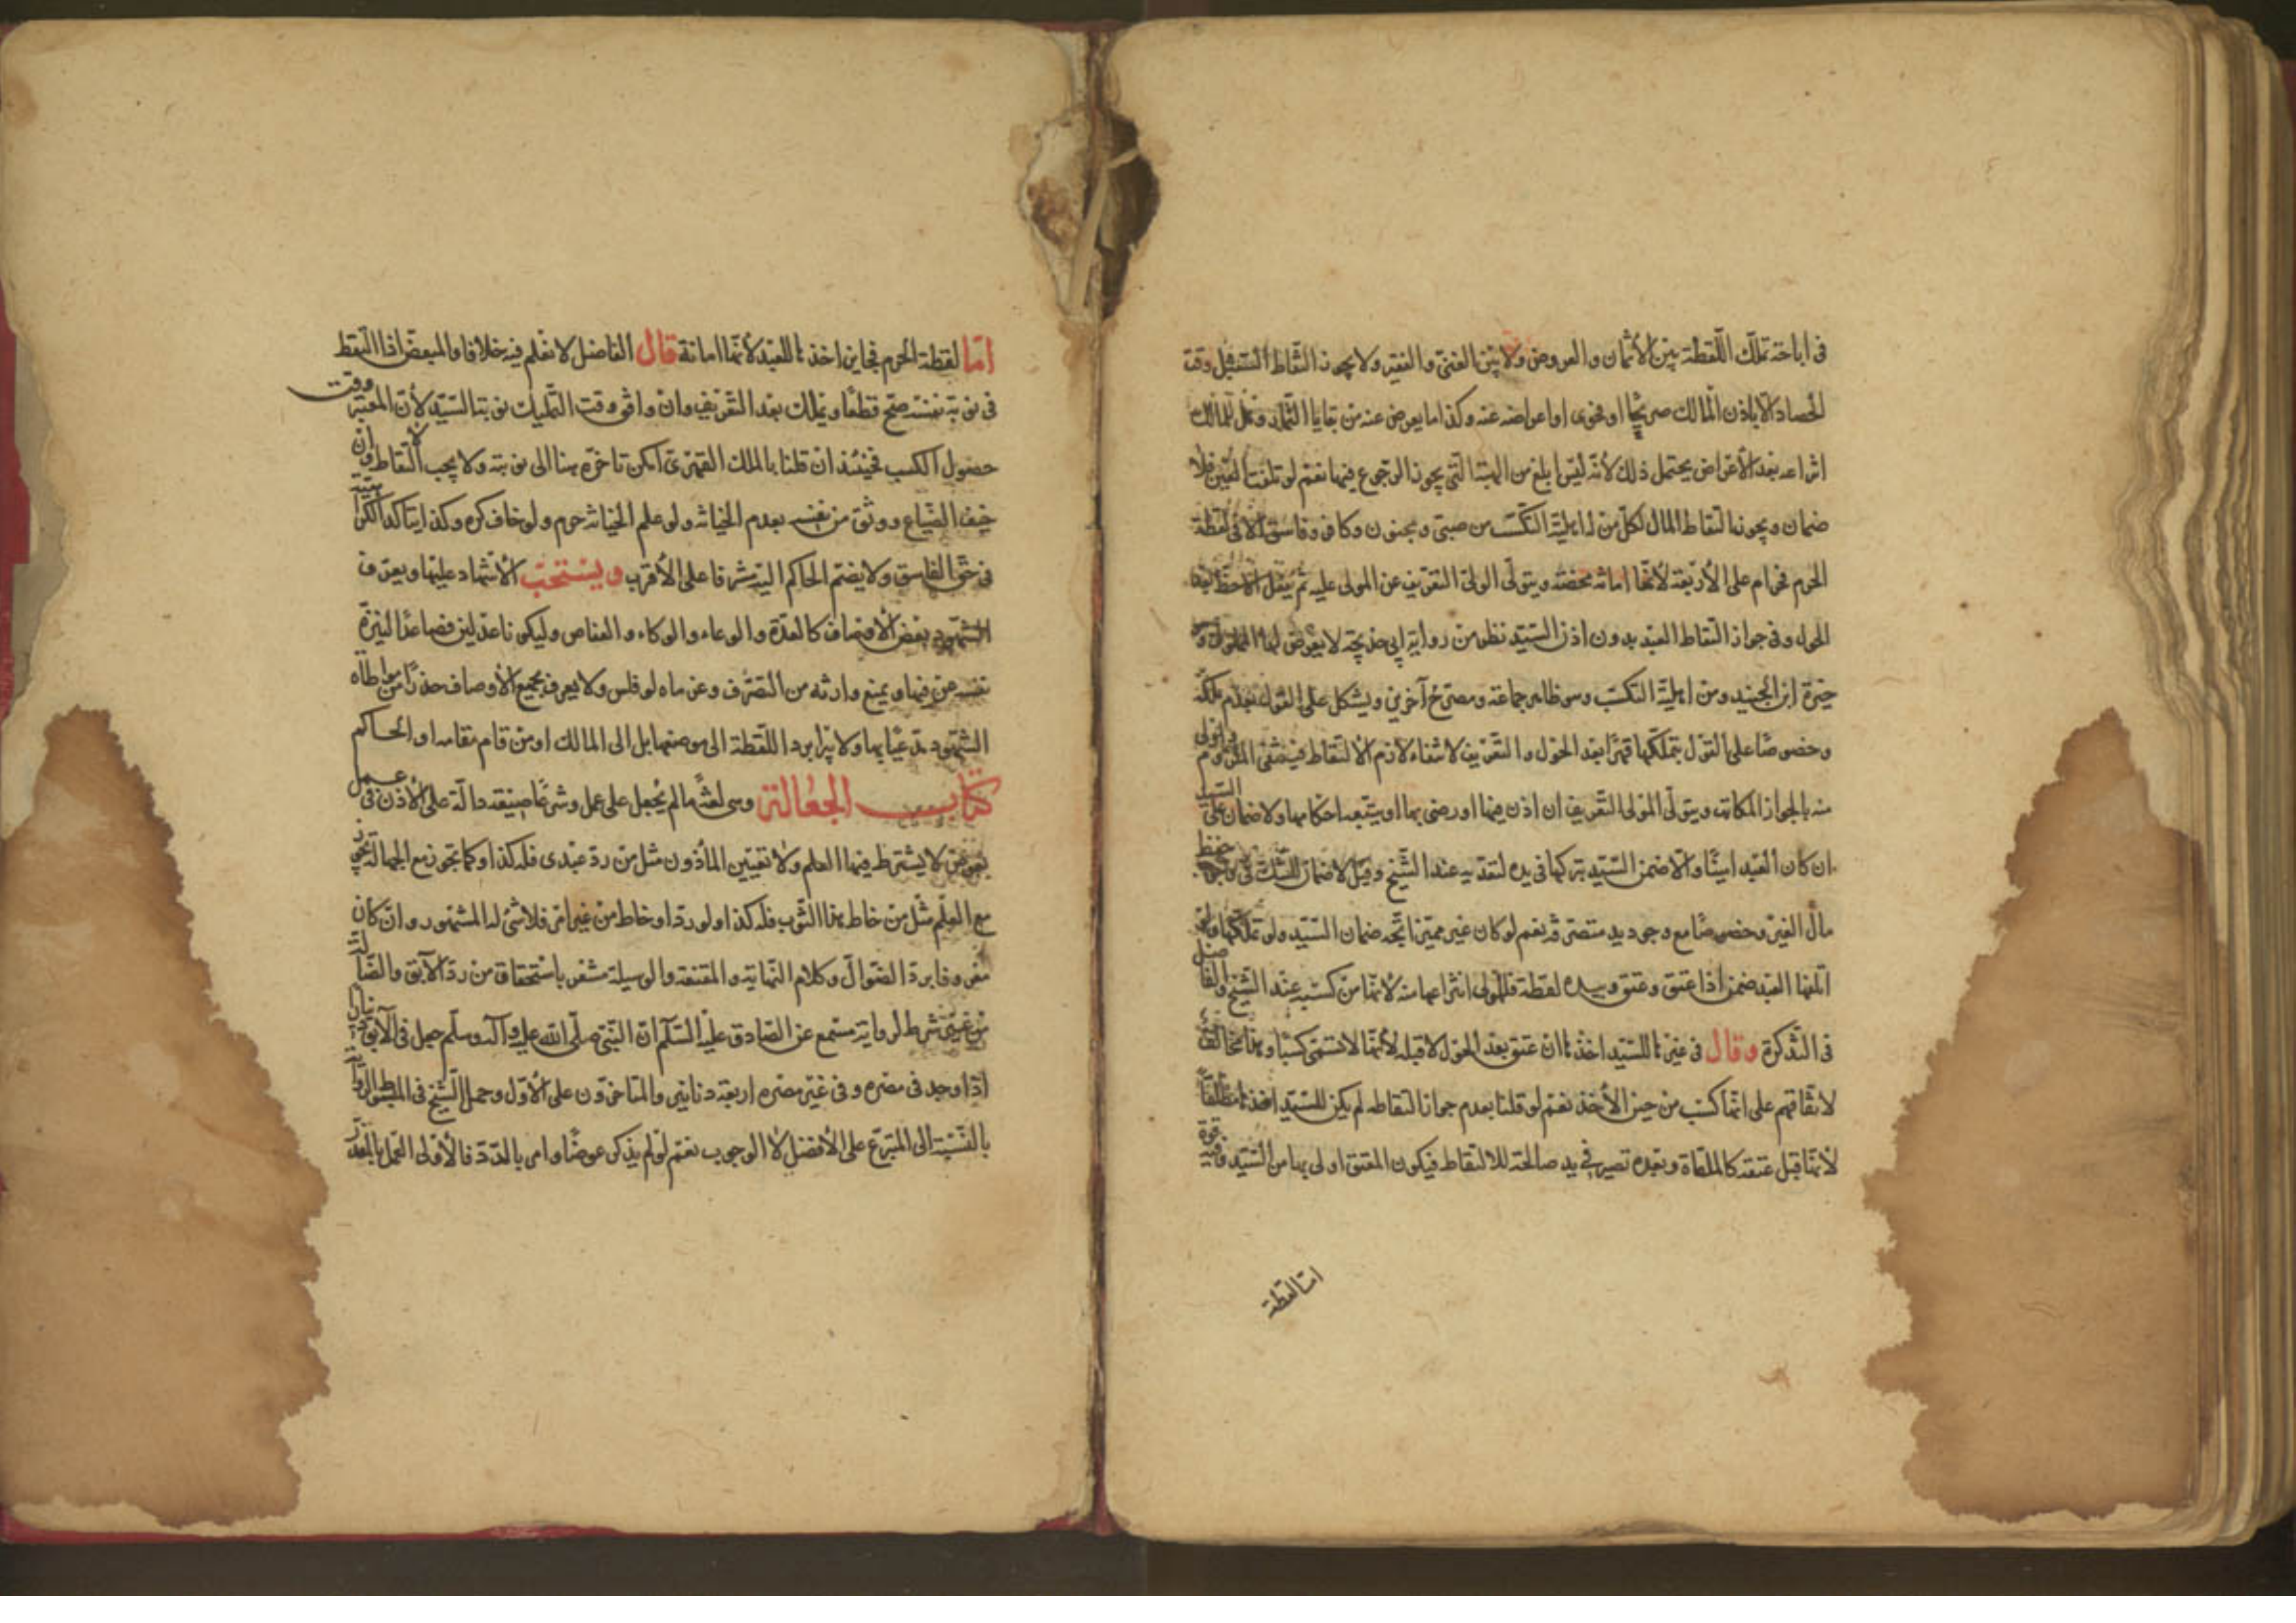 في اباحة تملك اللقطة بين الأثمان والعروض ولا بين الغني والفقير ولا يجوز التقاط السنبل وقت
الحصاد الا باذن المالك صريحا او فحوى او اعراضه عنه وكذا ما يعرض عنه من بقايا الثمار وهل للمالك
انتزاعه بعد الأعراض يحتمل ذلك لأنه ليس ابلغ من الهبة التي يجوز الرجوع فيها نعم لو تلفت العين فلا
ضمان ويجوز التقاط المال لكل من له اهلية التكسب من صبي ومجنون وكافر وفاسق الا في لقطة
الحرم فحرام على الأربعة لأنها امانة محضة ويتولى الولي التعريف عن المولى عليه ثم يفعل الاحظ بعد
الحول وفي جواز التقاط العبد بدون اذن السيد نظر من رواية ابي خديجة لا يعرض لها المملوك و
خيرة ابن الجنيد ومن اهلية التكسب وهو ظاهر جماعة ومصرح آخرين ويشكل على القول بعدم ملكه
وخصوصا على القول بتملكها قهرا بعد الحول والتعريف لانتفاء لازم الالتقاط فينتفي الملزوم واولى
منه بالجواز المكاتب ويتولى المولى التعريف ان اذن فيها او رضى بها او يتبعه احكامها ولا ضمان على السيد
ان كان العبد امينا والا ضمن السيد بتركها في يده لتعديه عند الشيخ وقيل لا ضمان للشك في وجوب حفظ
مال الغير وخصوصا مع وجود يد متصرفة نعم لو كان غير مميز اتجه ضمان السيد ولو تملكها او
اتلفها العبد ضمن اذا عتق وعتق وبيده لقطة فللمولى انتزاعها منه لأنها من كسبه عند الشيخ والفاضل
في التذكرة وقال في غيرها للسيد اخذها ان عتق بعد الحول لا قبله لأنها لا تسمى كسبا وهذا مخالف
لاتفاقهم على انها كسب من حين الأخذ نعم لو قلنا بعدم جواز التقاطه لم يكن للسيد اخذها مطلقا
لأنها قبل عتقه كالملقاة وبعده تصير في يد صالحة للالتقاط فيكون المعتق اولى بها من السيد وفيه قوة
امّا لقطة
امّا لقطة الحرم فجايز اخذها للعبد لأنها امانة قال الفاضل لا نعلم فيه خلافا والمبعض اذا التقط
في نوبة نفسه صح قطعا وتملك بعد التعريف وان وافق وقت التمليك نوبة السيد لأن المعتبر وقت
حصول الكسب فحينئذ ان قلنا بالملك القهري امكن تاخره هنا الى نوبته ولا يجب الالتقاط وان
خيف الضياع ووثق من نفسه بعدم الخيانة ولو علم الخيانة حرم ولو خاف كره وكذا يتاكد الكراهية
في حق الفاسق ولا يضم الحاكم اليه مشرفا على الأقرب ويستحب الأشهاد عليها ويعرف
الشهود بعض الأوصاف كالعدة والوعاء والوكاء والعفاص وليكونا عدلين فصاعدا ليتنزه
نفسه عن فيها ويمنع وارثه من التصرف وغرماه لو فلس ولا يعرف بجميع الأوصاف حذرا من مواطاة
الشهود مدعيا بها ولا يبرا برد اللقطة الى موضعها بل الى المالك او من قام مقامه او الحاكم
كتاب الجعالة وهي لغة ما لم يجعل على عمل وشرعا صيغة دالة على الأذن في عمل
بعوض لا يشترط فيها العلم ولا تعيين المأذون مثل من رد عبدي فله كذا وكما تجوز مع الجهالة تجوز
مع العلم مثل من خاط هذا الثوب فله كذا ولو رد او خاط من غير امر فلا شئ له المشهور وان كان
معروفا برد الضوال وكلام النهاية والمقنعة والوسيلة مشعر باستحقاق من رد الآبق والضالة
من غير شرط لرواية مسمع عن الصادق عليه السلام ان النبي صلى الله عليه وآله وسلم جعل في الآبق دينارا
اذا وجد في مصره وفي غير مصره اربعة دنانير والمتاخرون على الأول وحمل الشيخ في المبسوط الرواية
بالنسبة الى المتبرع على الأفضل لا الوجوب نعم لو لم يذكر عوضا وامر بالرد فالأولى العمل بالمقدر